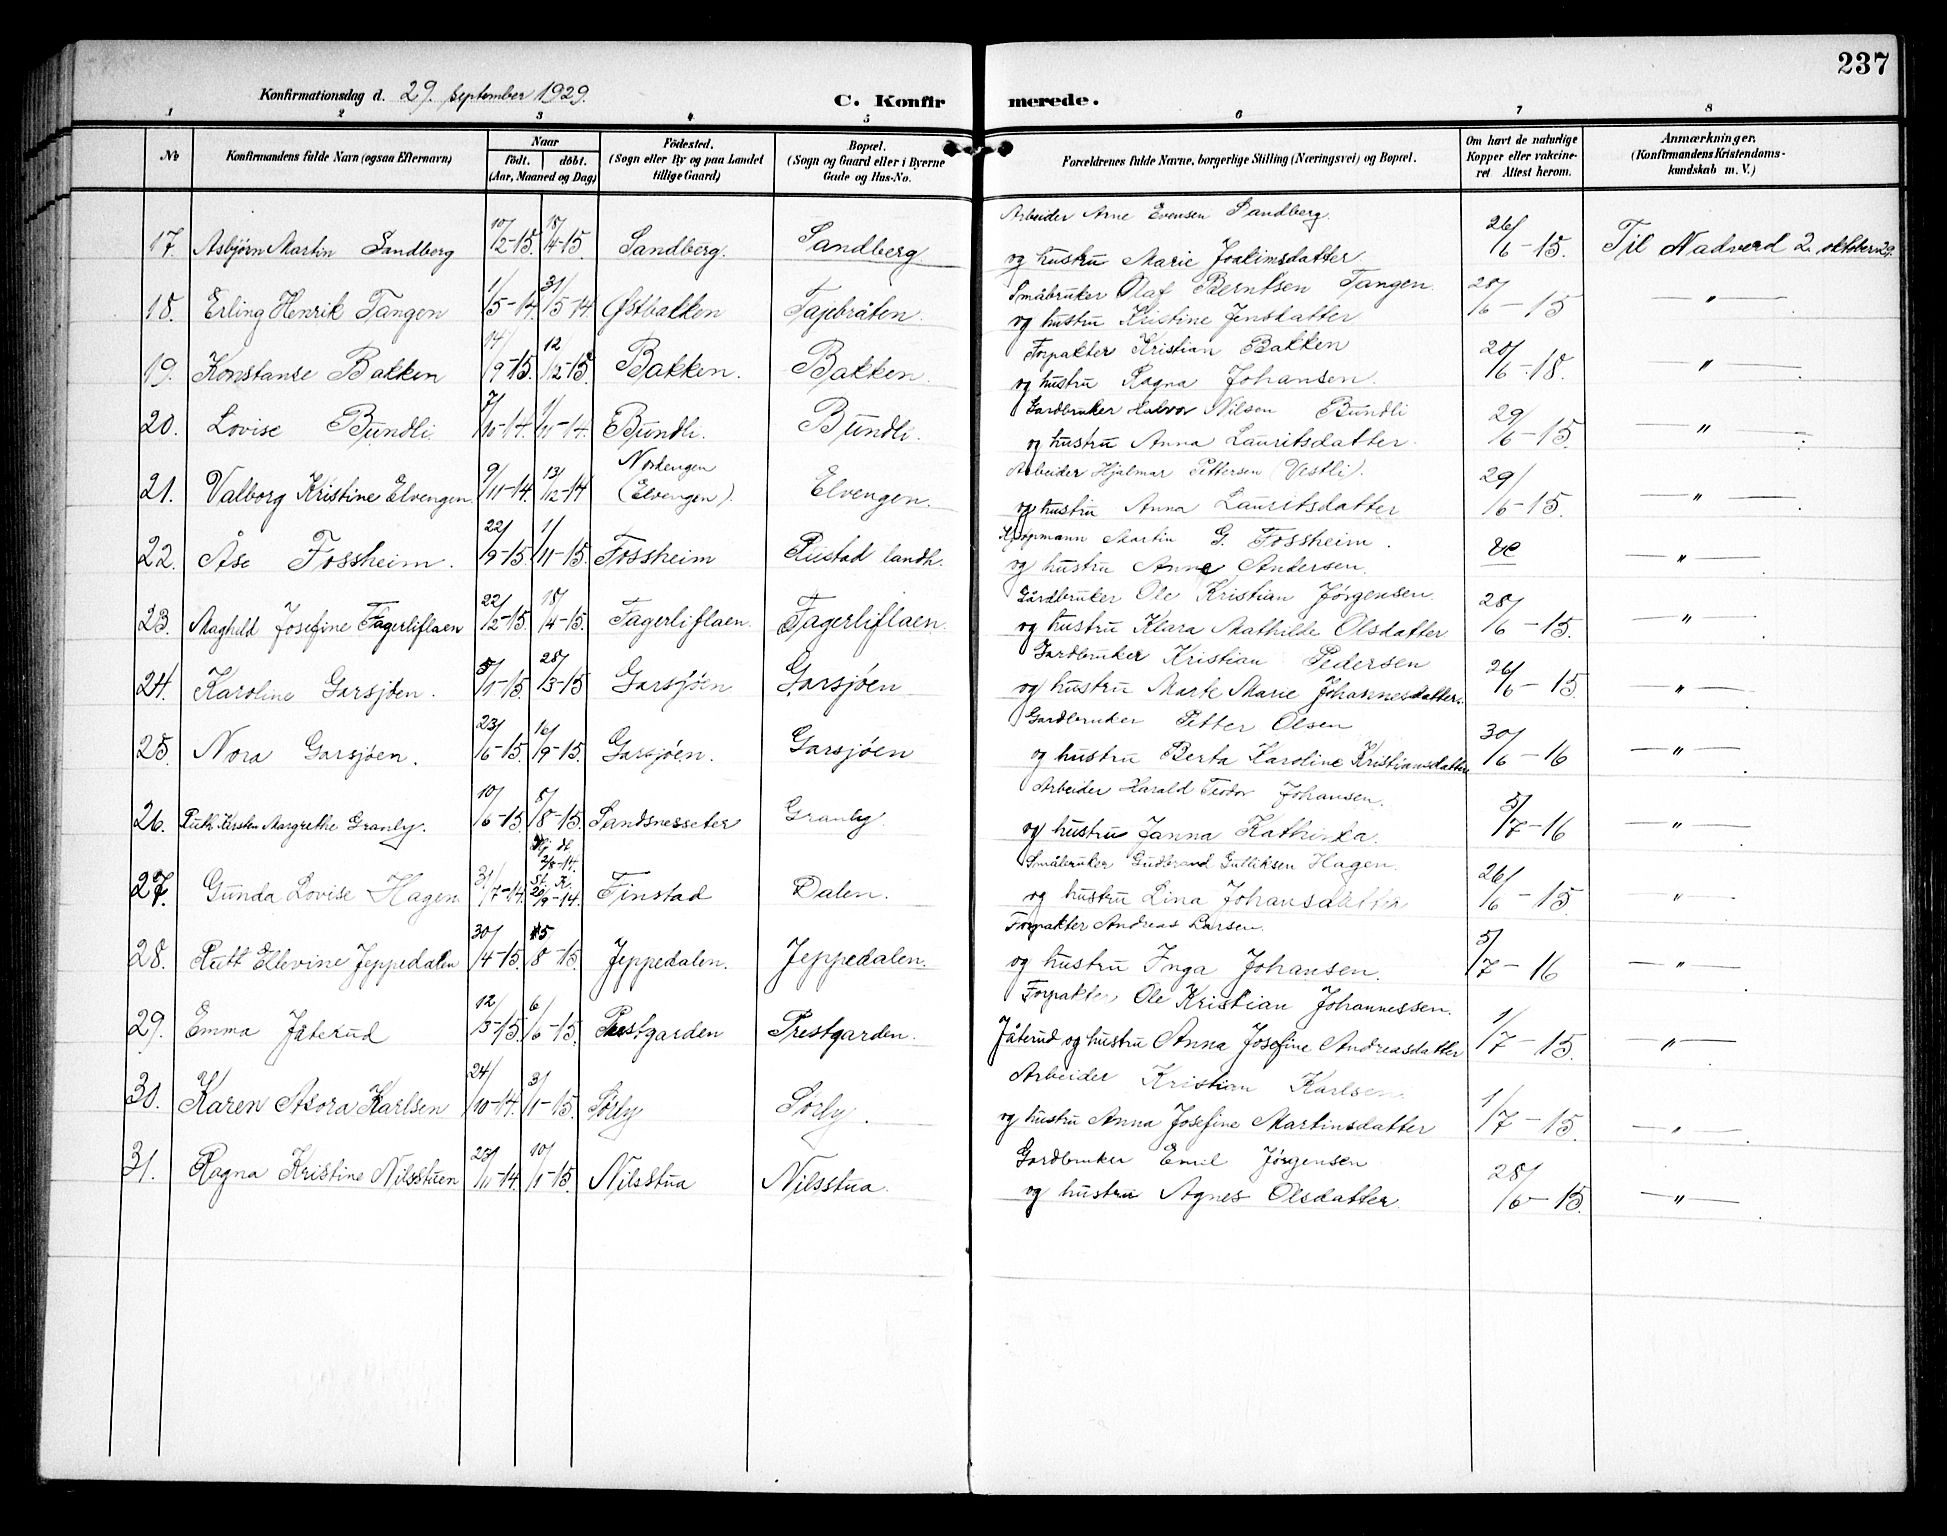 237
Konfirmationsdag d. 29. september 1929.
C. Konfirmerede.
1 2 3 4 5 6 7 8
No
Konfirmandens fulde Navn (ogsaa Efternavn)
Naar
født. døbt.
(Aar, Maaned og Dag)
Fødested.
(Sogn eller By og paa Landet
tillige Gaard)
Bopæl.
(Sogn og Gaard eller i Byerne
Gade og Hus-No.
Forældrenes fulde Navne, borgerlige Stilling (Næringsvei) og Bopæl.
Om havt de naturlige
Kopper eller vakcine-
ret Attest herom.
Anmærkninger.
(Konfirmandens Kristendoms-
kundskab m. V.)
Arbeider Arne Evensen Sandberg.
17. Asbjørn Martin Sandberg 10/2-15. 18/4-15. Sandberg. Sandberg og hustru Marie Joakimsdatter 26/6-15. Til Nadverd 2. oktober 29.
Småbruker Olaf Berntsen Tangen.
18. Erling Henrik Tangen 1/5-14. 31/5-14. Østbakken Tajebråten. og hustru Kristine Jensdatter 28/6-15 — " —
Forpakter Kristian Bakken
19. Konstanse Bakken 14/9-15. 12/12-15. Bakken. Bakken. og hustru Ragna Johansen. 28/6-18. — " —
Gardbruker Halvor Nilsen Bundli
20. Lovise Bundli. 7/10-14. 1/11-14. Bundli. Bundli. og hustru Anna Lauritsdatter. 29/6-15. — " —
Arbeider Hjalmar Pettersen (Vestli).
Nordengen
21. Valborg Kristine Elvengen. 9/11-14. 13/12-14 (Elvengen). Elvengen. og hustru Anna Lauritsdatter 29/6-15. — " —
Kjøpmann Martin G. Fossheim.
22. Åse Fossheim. 22/9-15. 1/11-15. Fossheim Rustad landh. og hustru Anne Andersen. — " —
Gårdbruker Ole Kristian Jørgensen.
23. Maghild Josefine Fagerliflaen 22/2-15. 18/4-15. Fagerliflaen. Fagerliflaen. og hustru Klara Mathilde Olsdatter 28/6-15. — " —
Gardbruker Kristian Pedersen
24. Karoline Garsjøen. 5/1-15. 28/3-15 Garsjøen Garsjøen og hustru Marte Marie Johannesdatter. 26/6-15. — " —
Gardbruker Petter Olsen
25. Nora Garsjøen. 23/6-15. 16/9-15. Garsjøen. Garsjøen og hustru Berta Karoline Kristiansdatter 30/6-16 — " —
Arbeider Harald Teodor Johansen.
26. Ruth Kirsten Margrethe Granly. 10/6-15. 8/8-15. Sandsnesseter Granly. og hustru Janna Kathinka. 5/7-16 — " —
Småbruker Gudbrand Gulliksen Hagen.
Hj. d. 2/8-14.
27. Gunda Lovise Hagen 31/7-14. St. K. 20/9-14. Finstad Dalen. og hustru Lina Johansdatter 26/6-15. — " —
Forpakter Andreas Larsen.
28. Rutt Ellevine Jeppedalen 30/4-15. 15/8-15. Jeppedalen. Jeppedalen. og hustru Inga Johansen. 5/7-16 — " —
Forpakter, Ole Kristian Johannessen.
29. Emma Jåterud 12/3-15. 6/6-15. Prestgarden Prestgarden. Jåterud og hustru Anna Josefine Andreasdatter 1/7-15. — " —
Arbeider Kristian Karlsen.
30. Karen Asora Karlsen 24/10-14. 3/1-15. Sørly Sørly. og hustru Anna Josefine Martinsdatter 1/7-15. — " —
Gardbruker Emil Jørgensen
31. Ragna Kristine Nilsstuen 28/11-14. 10/1-15. Nilsstua Nilsstua. og hustru Agnes Olsdatter. 28/6-15. — " —